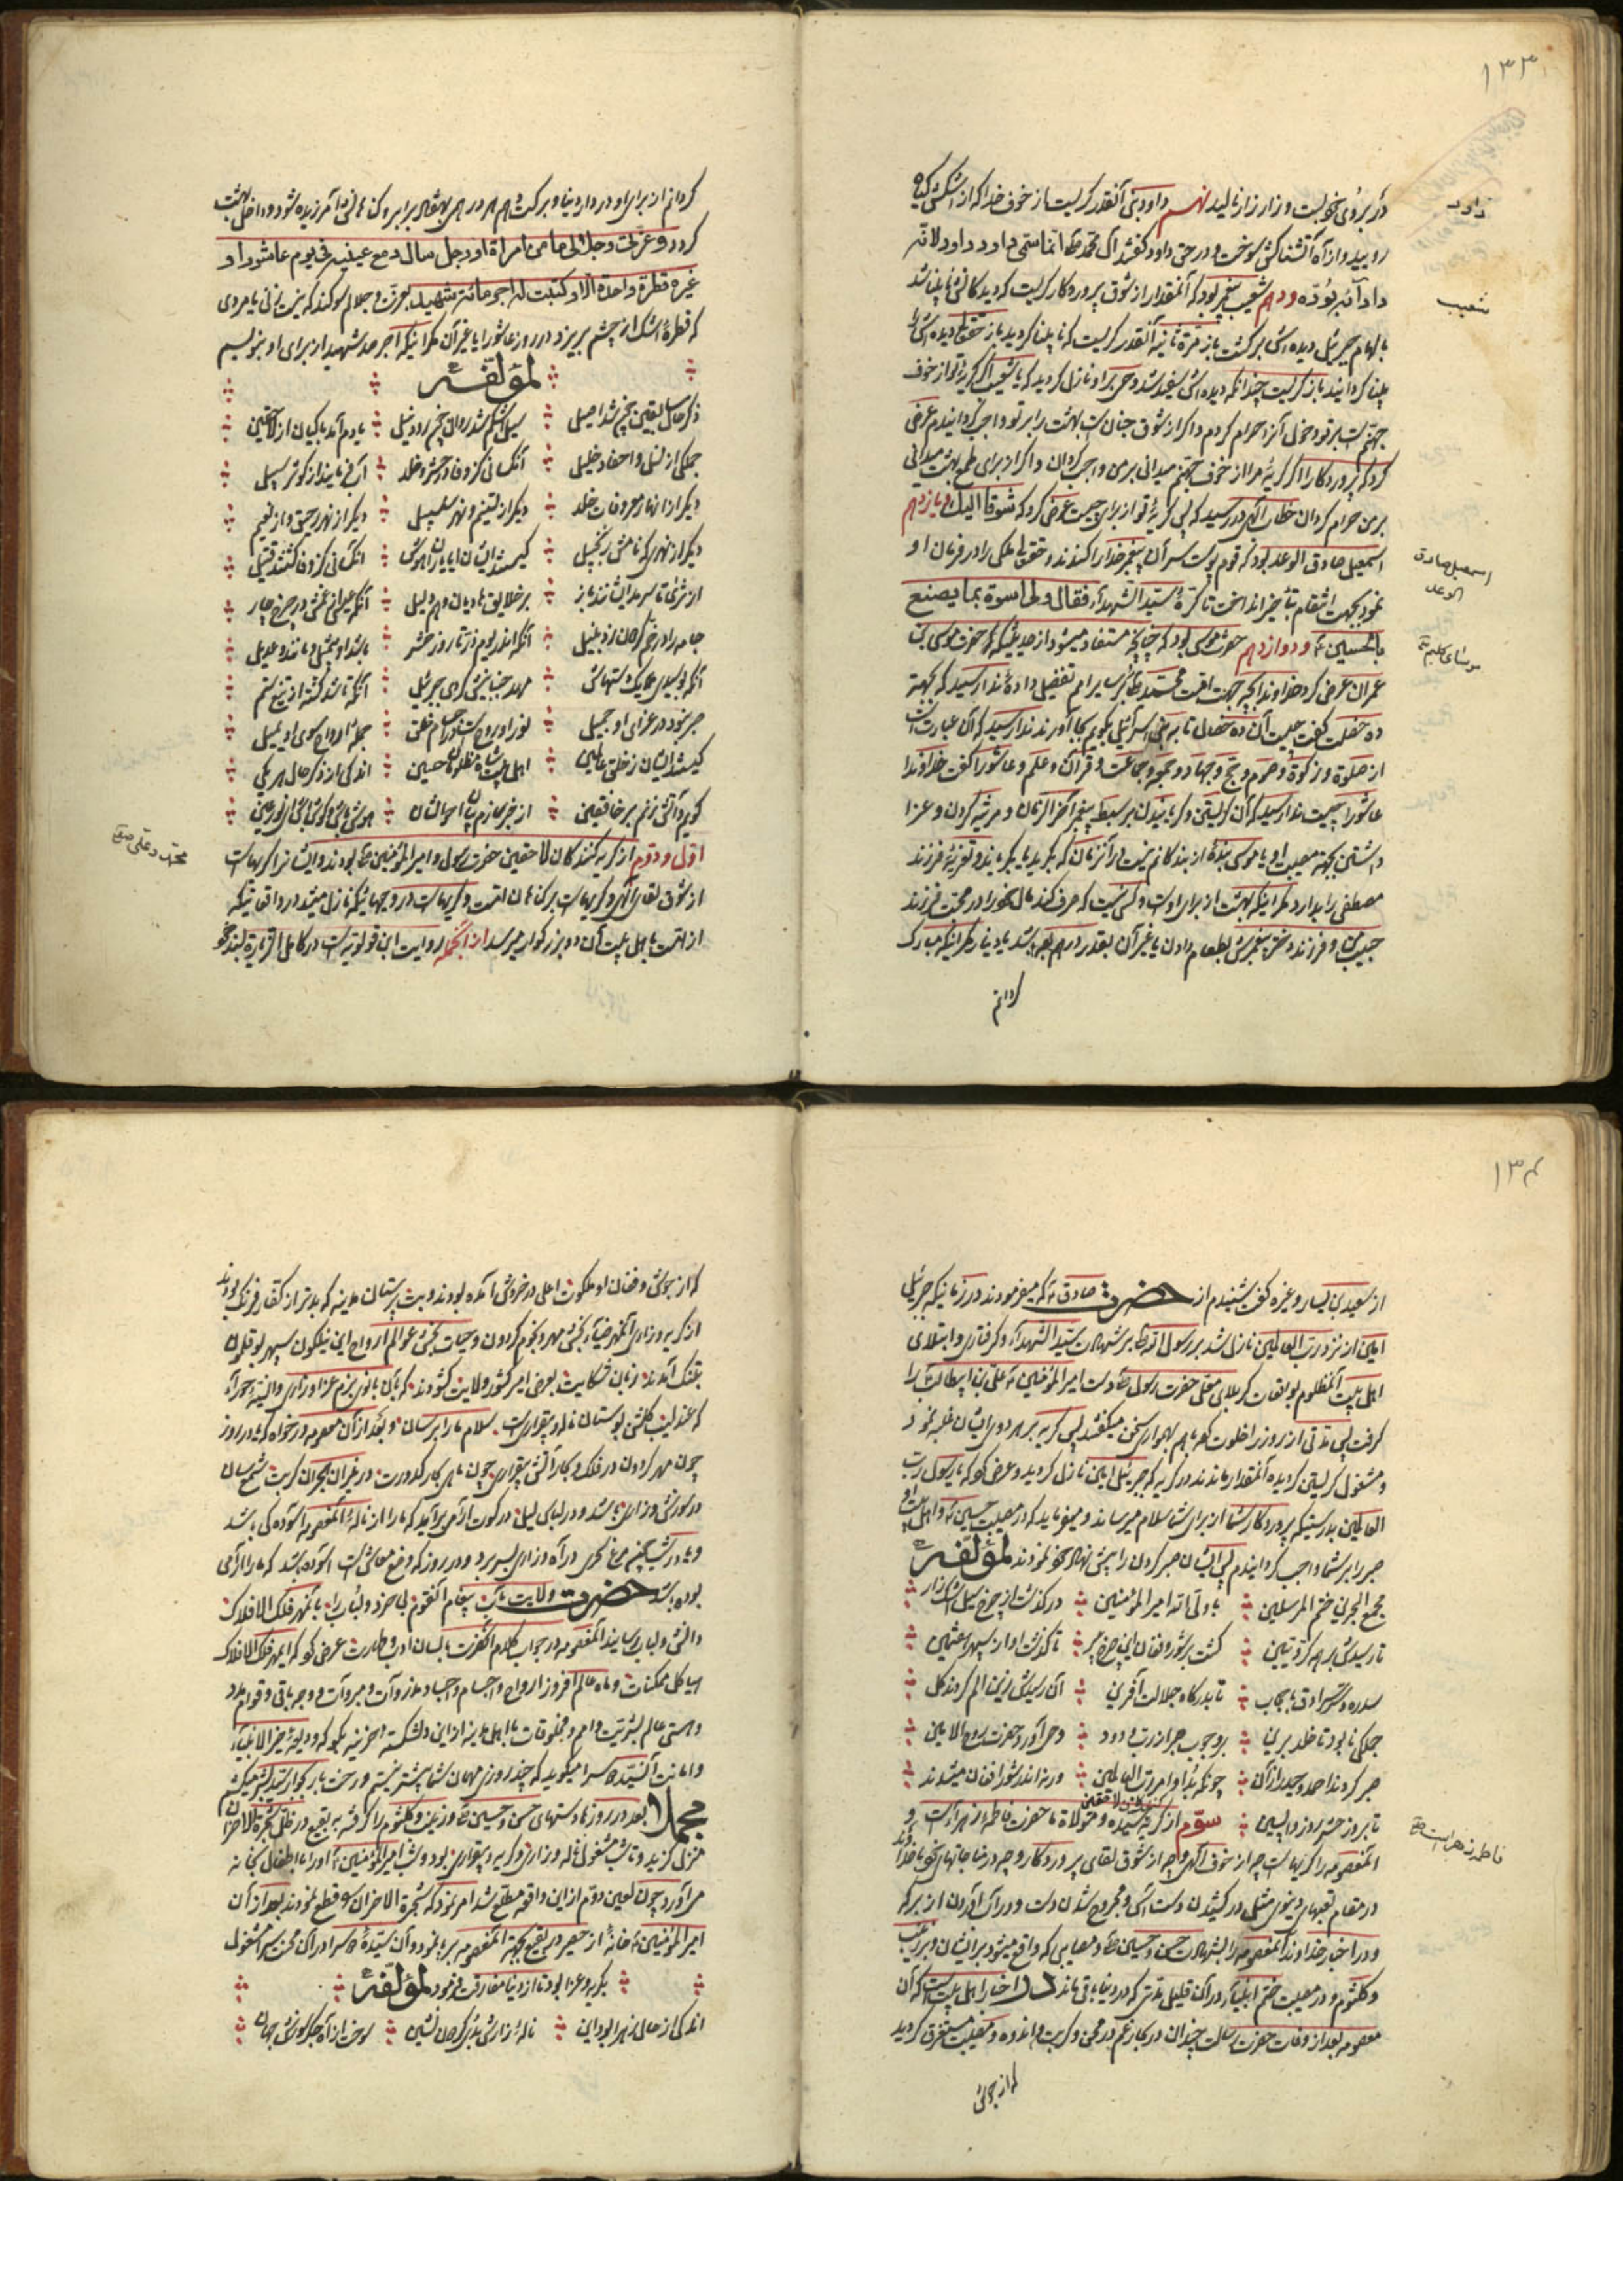 ١٣٣
در بروی خود بست و زار زار نالید نهم داود نبی آنقدر گریست از خوف خدا که از اشکش گیاه
داود
رویید و از آه آتشناکش سوخت و در حق داود گفتند آل محمد ظ انما سمی داود داود لانه
داوا بود و دهم شعیب پیغمبر بود که آنمقدار از شوق پروردگار گریست که دیدگانش نابینا شد
شعیب
دیده اش برگشت باز مرة ثانیه آنقدر گریست که نابینا گردید باز حقتعالی دیده اش را
بینا گردانید باز گریست چندانکه دیده اش سفید شد وحی بر او نازل گردید که یا شعیب اگر گریه تو از خوف
جهنم است بر تو دخول آنرا حرام کردم و اگر از شوق جنان است بهشت را بر تو واجب گردانیدم عرض
کرد که پروردگارا اگر گریه مرا از خوف جهنم میدانی بر من واجب گردان و اگر از برای طمع بهشت میدانی
بر من حرام گردان خطاب الهی در رسید که پس گریه تو از برای چیست عرض کرد که شوقا الیک و یازدهم
اسمعیل صادق الوعد بود که قوم پوست سر آن پیغمبر خدا را کندند و حقتعالی ملکی را در فرمان او
اسمعیل صادق
الوعد
نمود بجهت انتقام بتأخیر انداخت تا کره سید الشهدآء فقال ولی اسوة بما یصنع
بالحسین ع و دوازدهم حضرت موسی بود که چنانچه مستفاد میشود از حدیثیکه که حضرت موسی بن
موسای کلیم ع
عمران عرض کرد خداوندا بچه جهت امت محمد ظ بر سایر امم تفضیل داده ندا رسید که بجهة
ده خصلت گفت چیست آن ده خصال تا به بنی اسرآئیل بگویم بجا آورند ندا رسید که آن عبارت است
از صلوة و زکوة و صوم و حج و جهاد و جمعه و جماعت و قرآن و علم و عاشورا گفت خداوندا
عاشورا چیست ندا رسید که آن گریستن و گریانیدن بر سبط پیغمبر آخر الزمان و مرثیه کردن و عزا
داشتن بجهة مصیبت او یا موسی بندۀ از بندگانم نیست در آنزمان که بگرید یا بگریاند و تعزیۀ فرزند
مصطفی را بدارد مگر اینکه بهشت از برای اوست و کسی نیست که صرف کند مال خود را در محبت فرزند
حبیب من و فرزند دختر پیغمبرش بطعام دادن یا غیر آن بقدر درهم بوده باشد یا دینار مگر اینکه مبارک
گردانم
گردانم از برای او در دار دنیا و برکت دهم هر درهمی بهفتاد برابر و گناهانش آمرزیده شود و داخل بهشت
گردد و عزتی و جلالی ما من امراة او رجل سال دمع عینیه فی یوم عاشورا و
غیره قطرة واحدة الا و کتبت له اجر مائة شهید بعزت و جلالم سوگند که نیست زنی یا مردی
که قطرۀ اشک از چشم بریزد در روز عاشورا یا غیر آن مگر اینکه اجر صد شهید از برای او بنویسم
لمؤلفه
ذکر حال سابقین شد اصیل سیل اشکم شد روان رود نیل یادم آمد باکیان از لاحقین
جملگی از نسل و احفاد خلیل آنکسانی کز وفا در حشر و خلد آب می نمایند از کوثر سبیل
دیگر از انهار معروفات خلد دیگر از تسنیم و نهر سلسبیل دیگر از نهر رحیق و از نعیم
دیگر از نهری که نامش زنجبیل کیستند ایشان آنکسانی کز وفا گشتند قتیل
از ثری تا سرمد ایشانند باز بر خلایق هادیان و هم دلیل
آنکه اندر یوم زر تا روز حشر باشد او بیمثل و مانند و عدیل
مهد جنبانیش کردی جبرئیل آنکه تا شد کشته از تیغ ستم
جبر نبود در عزای او جمیل نور او روحست و اجسام خلق جمله ارواح سوی او یمیل
کیستند ایشان ز خلق عالمین اهل بیت شاه مظلومان حسین اندکی از ذکر حال هر یکی
گویم و آتش زنم بر خافقین
اول و دوم از گریه کنندگان لاحقین حضرت رسول و امیر المؤمنین ظ بودند و ایشانرا گریهاست
محمد و علی ص
از شوق لقای الهی و گریهاست بر گناهان امت و گریهاست در وحیهائیکه نازل میشد در واقعاتیکه
از امت باهل بیت آن دو بزرگوار میرسد از آنجمله روایت ابن قولویه است در کامل الزیاره بسند خود
١٣٤
از سعید بن یسار و غیره گفت شنیدم از حضرت صادق ع که میفرمودند در زمانیکه جبرئیل
امین از نزد رب العالمین نازل شد بر رسول الله ظ بر شهادت سید الشهدآء و گرفتاری و ابتلای
اهل بیت آنمظلوم بواقعات کربلا پس حضرت رسول ظ دست امیر المؤمنین ع علی بن ابیطالب را
گرفت پس مدتی از روز را خلوت که باهم سخن میگفتند پس گریه بر هر دو ایشان غلبه نمود
و مشغول گریستن گردیده آنمقدار ماندند در گریه که جبرئیل امین نازل گردید و عرض کرد که یا رسول رب
العالمین بدرستیکه پروردگار شما از برای شما سلام میرساند و میفرماید که در مصیبت حسین ع و اهل بیت او
صبر را بر شما واجب گردانیدم پس ایشان صبر کردن را پیش نهاد خود نمودند لمؤلفه
مجمع البحرین ختم المرسلین با ولی الله امیر المؤمنین درگذشت از چرخ سیل اشک زار
تا رسیدش بر همه کروبین گشت پر شور و فغان این چرخ پیر تا گذشت او از سپهر هشتمین
سدره و سرادق تا بدرگاه جلالت آفرین آن رسیدش زین الم کردند کل
جملگی تا بود تا خلد برین بر وجوب صبر از رب ودود وحی آورد حضرت روح الامین
صبر کردند احمد و حیدر از آن چونکه بد او امر رب العالمین ورنه اندر شور افغان میشدند
تا بروز حشر و روز واپسین سوم از گریه کنندگان لاحقین حضرت فاطمه زهراء است و
فاطمه زهراست ع
آنمعصومه را گریهاست چه از خوف الهی و چه از شوق لقای پروردگار و چه در مناجاتهای خود با خدا
در مقام تعبهای دنیوی مثل در کشیدن دست آس و مجروح شدن دست
و در اخبار خداوند آنمعصومه را بشهادت حسن و حسین ظ و مصایبی که واقع میشود بر ایشان و بر زینب
و کلثوم و در مصیبت ختم انبیآء در آن قلیل مدتی که در دنیا باقی ماند اخبار اهل بیت است که آن
معصومه بعد از وفات حضرت رسالت چندان در بحار غم در محن و کربت و اندوه و مصیبت مستغرق گردید
که از جوش
که از جوش و فغان او ملکوت اعلی در خروش آمده بودند و بت پرستان مدینه که بدتر از کفار فرنگ بودند
از گریه و زاری آنمهر ضیآء بخش مهر و نجوم گردون و حیات بخش عوالم ارواح این نیلگون سپهر بوقلمون
بتنگ آمدند زبان شکایت بعرض امیر کشور ولایت گشودند که بآن بانوی بزم عزا و زاری و انسیه حورآء
که عندلیب گلشن بوستان ناله و بیقراریست سلام ما را برسان و بعد از آن معصومه درخواه که یا در روز
چون مهر گردون در فلک و بحار آتش بیقراری چون ماهی بحار کدورت در نیران هجران کربت شمع سان
در سوزش و زاری باشد و در لباس لیل در کوت آرامی برآید که ما را از ناله آنمعصومه آسودگی باشد
و یا در شب همچو مرغ سحری در آه و زاری بسر برد و در روز که وضع معاش است آسوده باشد که ما را آرامی
بوده باشد حضرت ولایت مآب پیغام آنقوم بی خرد و لباب را بآنمهر فلک الافلاک
دانش و لباب رسانید آنمعصومه در جواب کلام آنحضرت بلسان ادب و طهارت عرض کرد که ایمهر فلک الافلاک
هیاکل ممکنات و ماه عالم افروز ارواح و اجسام و اجساد مذروآت و مبروآت و وجه باقی و قوام مدد
و هستی عالم بشریت و امم و مخلوقات باهل مدینه از این دلشکسته حزینه بگو که ودیعۀ خیر الانبیآء
و امانت آنسیده سرا میگوید که چند روزی مهمان شما بیشتر نیستم و رخت بار بجوار سید بشر میکشم
مجملا بعد در روزها دستهای حسن و حسین ظ و زینب و کلثوم را گرفته به بقیع در ظل شجرة الاحزان
منزل گزیده و تا شب مشغول ناله و زاری و گریه و بیقراری بود و شب امیر المؤمنین ع او را با اطفال بخانه
می آورد چون لعین دوم از این واقعه مطلع شد امر نمود که شجرة الاحزان را قطع نمودند بعد از آن
امیر المؤمنین ع خانۀ از حصیر در بقیع بجهة آنمعصومه برپا نمود و آن سیدۀ سرا در آن محن سرا مشغول
بگریه و عزا بود تا از دنیا مفارقت فرمود لمؤلفه
اندکی از حال زهرا بود این نالۀ زارش بد عرش نشین سوخت از آه جگر سوزش جهان